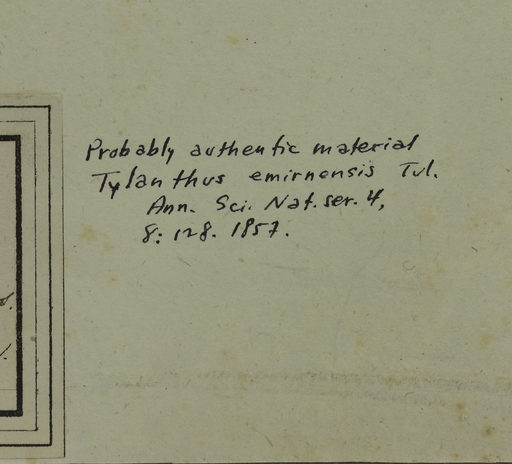 Probably authentic material
Tylanthus emirnensis Tul.
Ann. Sci. Nat. ser. 4,
8: 128. 1857.